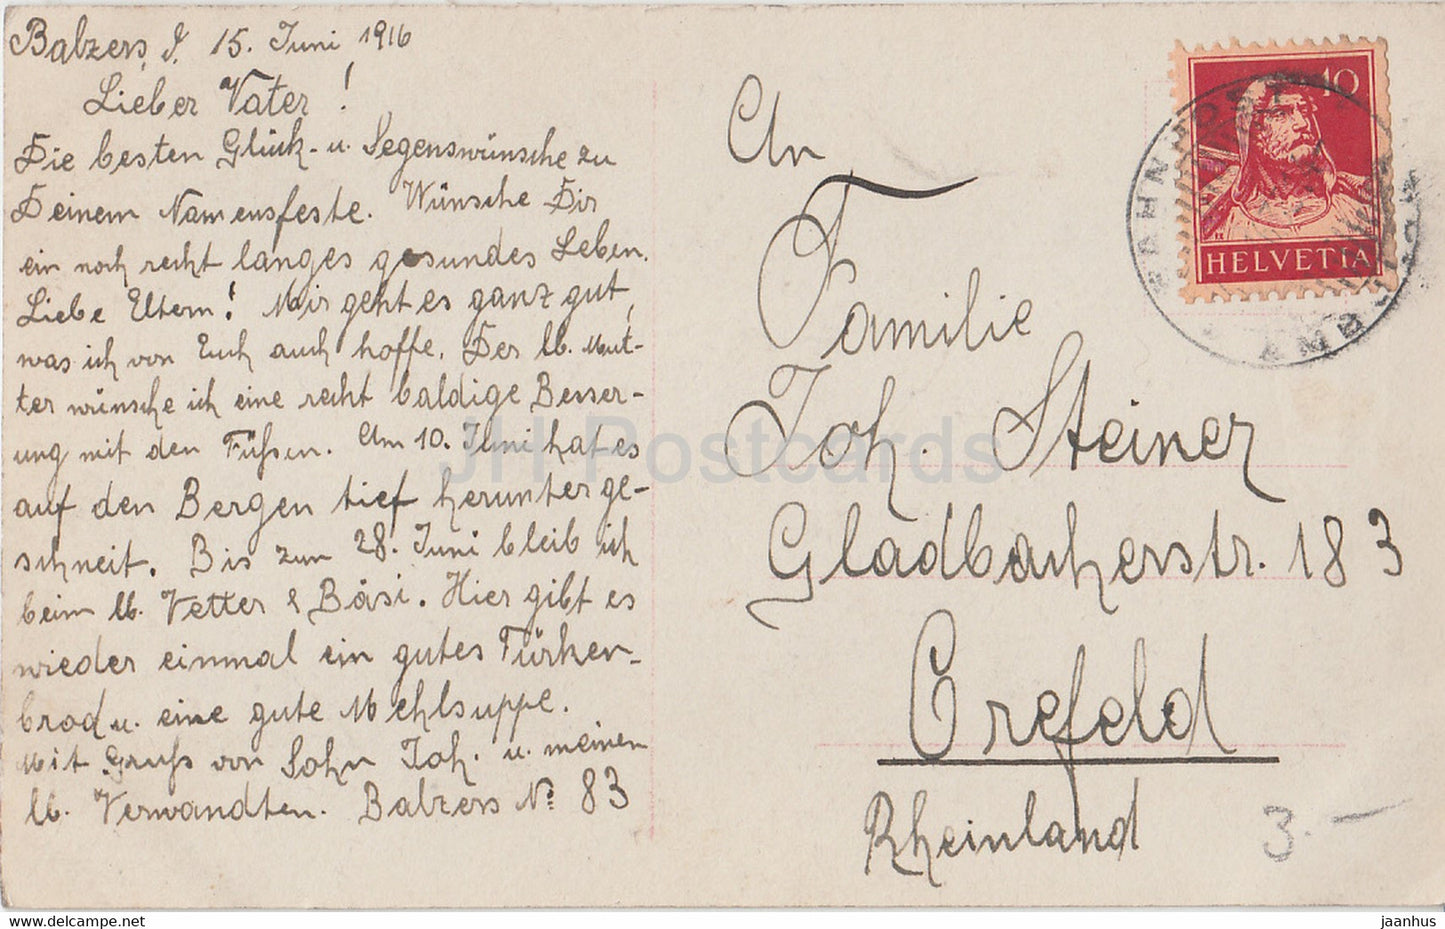 Balzers, d. 15. Juni 1916
Lieber Vater!
Die besten Glück- u. Segenswünsche zu
Deinem Namensfeste. Wünsche Dir
ein noch recht langes gesundes Leben.
Liebe Eltern! Mir geht es ganz gut,
was ich von Euch auch hoffe. Der lb. Mut-
ter wünsche ich eine recht baldige Besser-
ung mit den Füßen. Am 10. Juni hat es
auf den Bergen tief herunter ge-
schneit. Bis zum 28. Juni bleib ich
beim lb. Vetter & Bäsi. Hier gibt es
wieder einmal ein gutes Türken-
brod u. eine gute Mehlsuppe.
Mit Gruß von Sohn Joh. u. meinen
lb. Verwandten. Balzers No 83
An
Familie
Joh. Steiner
Gladbacherstr. 183
Crefeld
Rheinland
10
HELVETIA
3.-
JH Postcards
www.delcampe.net
jaanhus